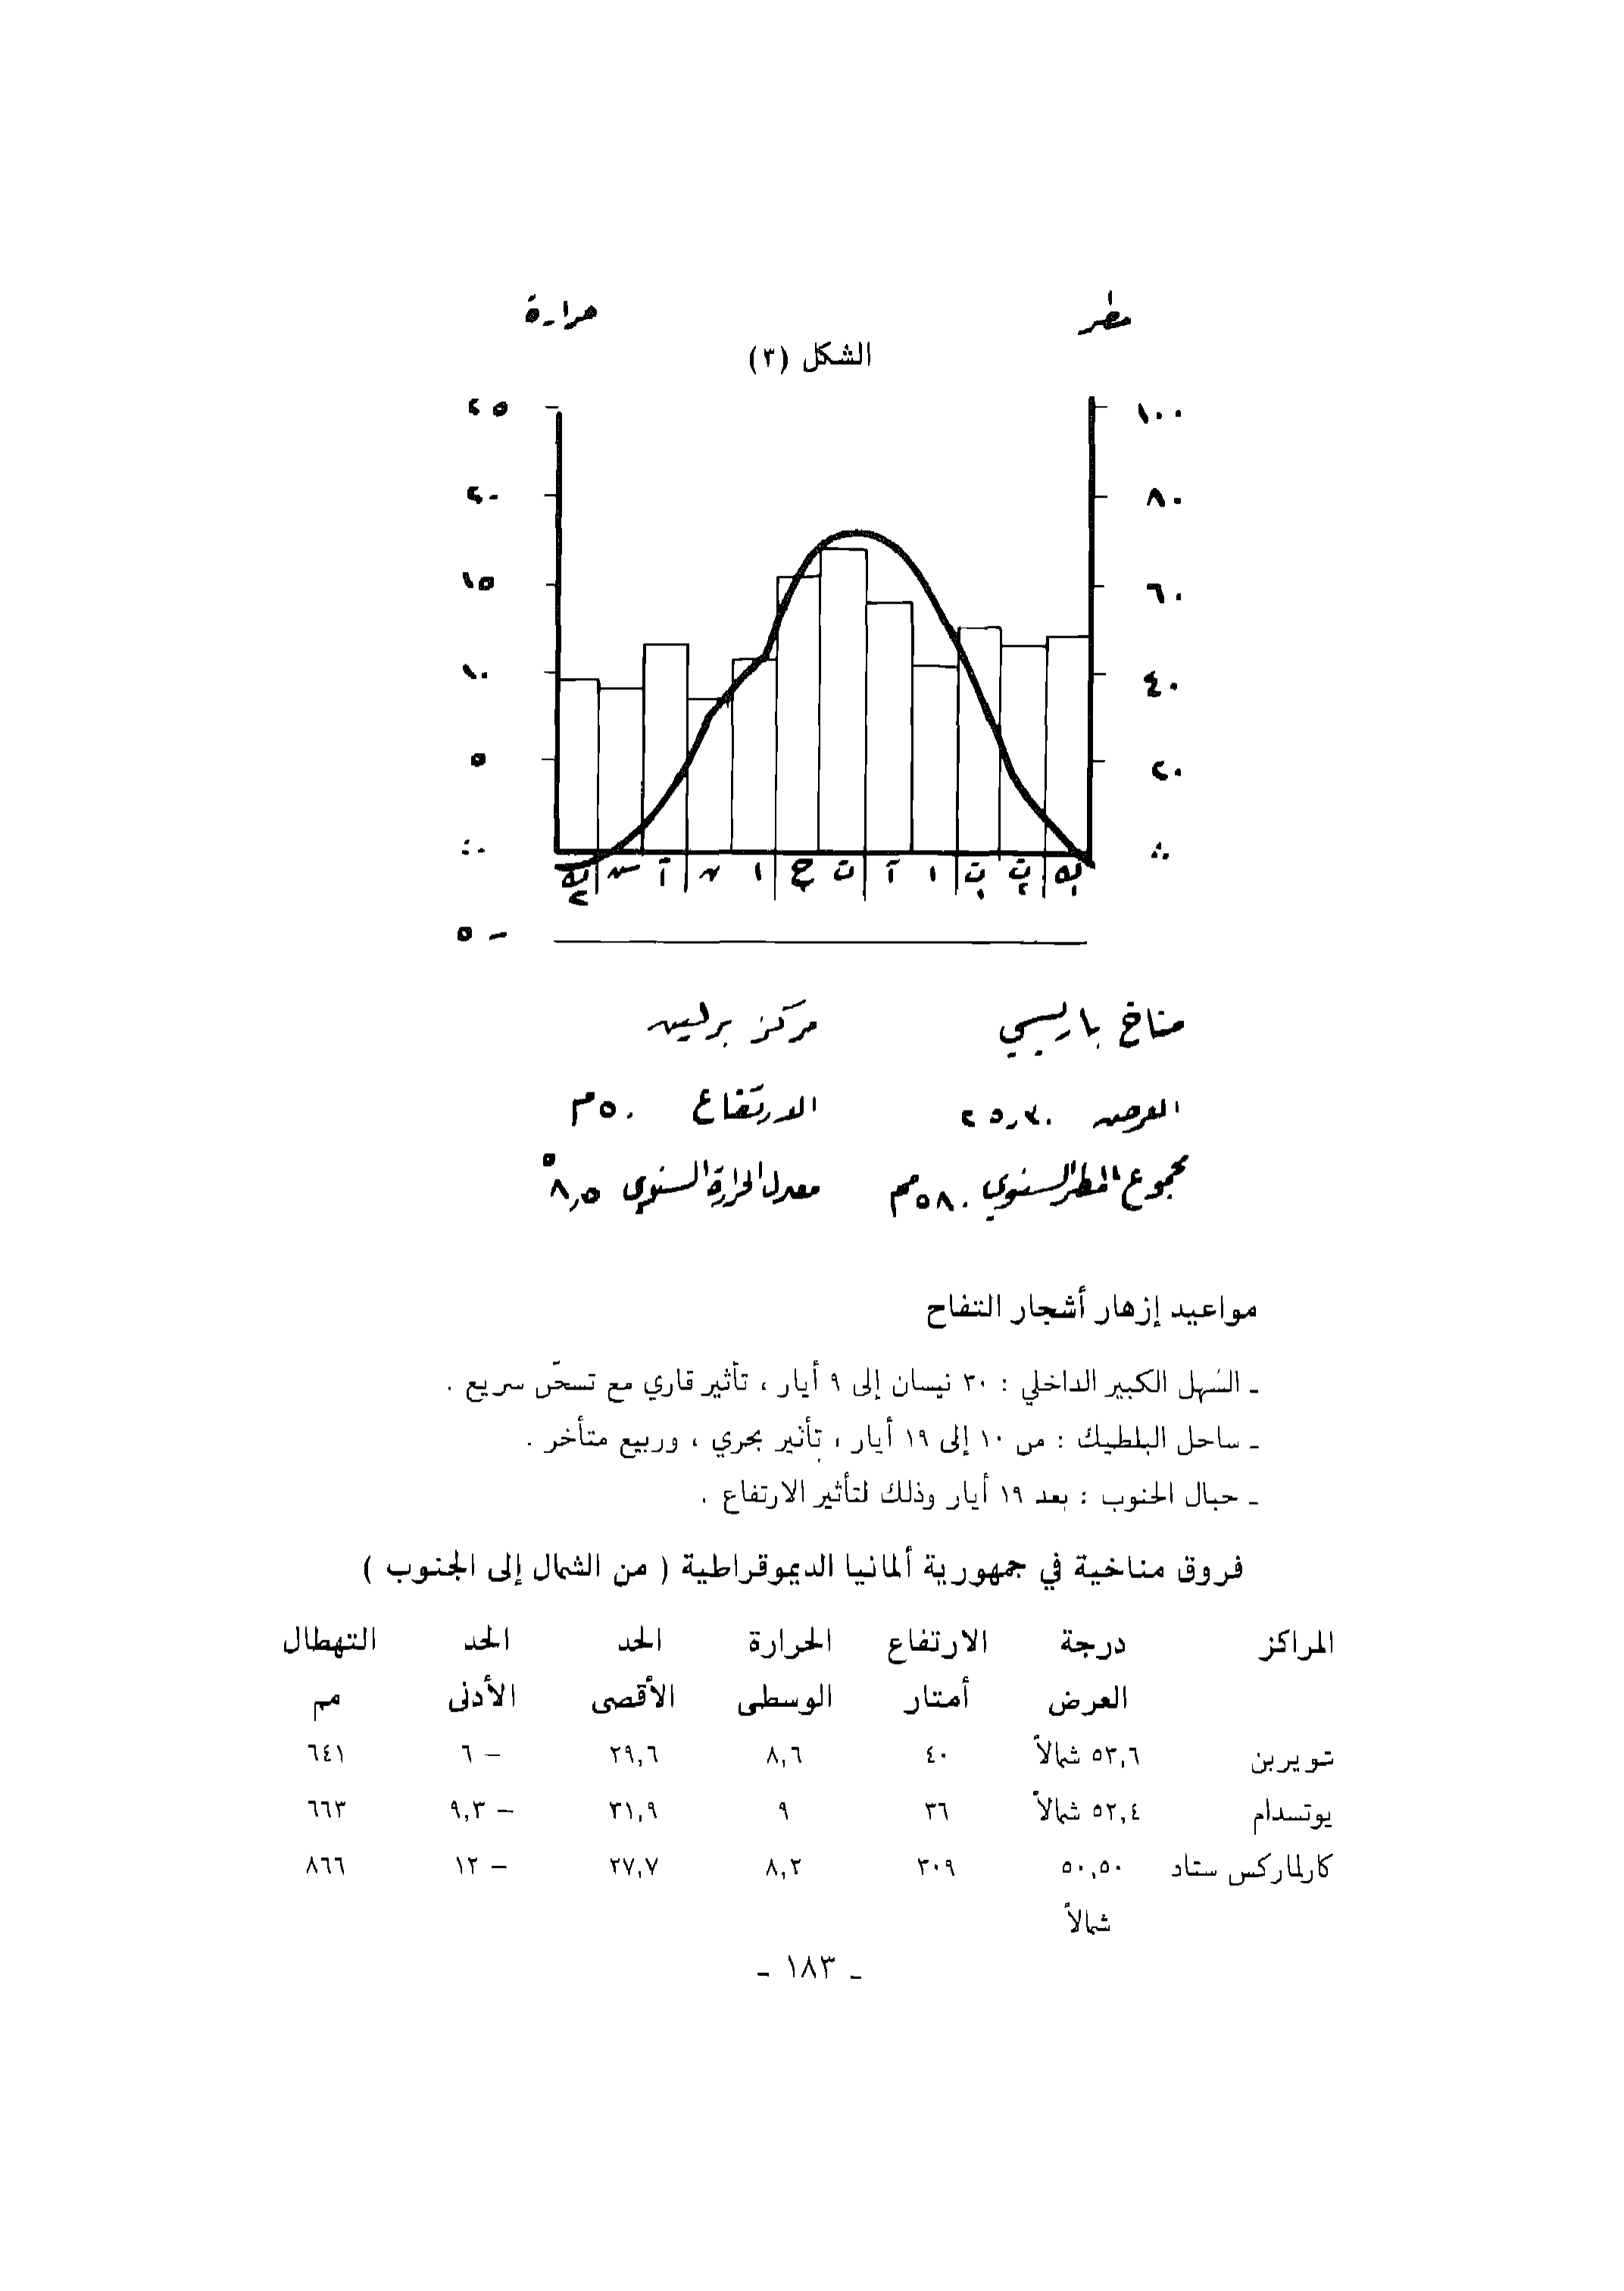 مطر حرارة
الشكل (٣)
١٠٠ ٢٥
٨٠ ٢٠
٦٠ ١٥
٤٠ ١٠
٢٠ ٥
ك٢ س آ ن ا ح ت آ ا ت١ ت٢ ك١
- ٥
مناخ باريسي مركز برلين
العرض ٢٥,٣٠ الارتفاع ٥٠م
مجموع المطر السنوي ٥٨٠مم معدل الحرارة السنوي ٨,٥°
مواعيد إزهار أشجار التفاح
ـ السهل الكبير الداخلي : ٣٠ نيسان إلى ٩ أيار ، تأثير قاري مع تسخّن سريع .
ـ ساحل البلطيك : من ١٠ إلى ١٩ أيار ، تأثير بحري ، وربيع متأخر .
ـ جبال الجنوب : بعد ١٩ أيار وذلك لتأثير الارتفاع .
فروق مناخية في جمهورية ألمانيا الديموقراطية ( من الشمال إلى الجنوب )
المراكز درجة الارتفاع الحرارة الحد الحد التهطال
العرض أمتار الوسطى الأقصى الأدنى مم
شويرين ٥٣,٦ شمالاً ٤٠ ٨,٦ ٢٩,٦ – ٦ ٦٤١
بوتسدام ٥٢,٤ شمالاً ٣٦ ٩ ٣١,٩ – ٩,٣ ٦٦٣
كارلماركس ستاد ٥٠,٥٠ ٣٠٩ ٨,٢ ٢٧,٧ – ١٢ ٨٦٦
شمالاً
ـ ١٨٣ ـ